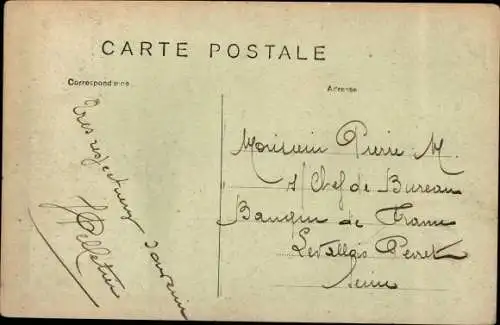 CARTE POSTALE
Correspondance
Adresse
Très respectueux souvenir
Pelletier
Monsieur Pierre M.
s/Chef de Bureau
Banque de France
Levallois Perret
Seine